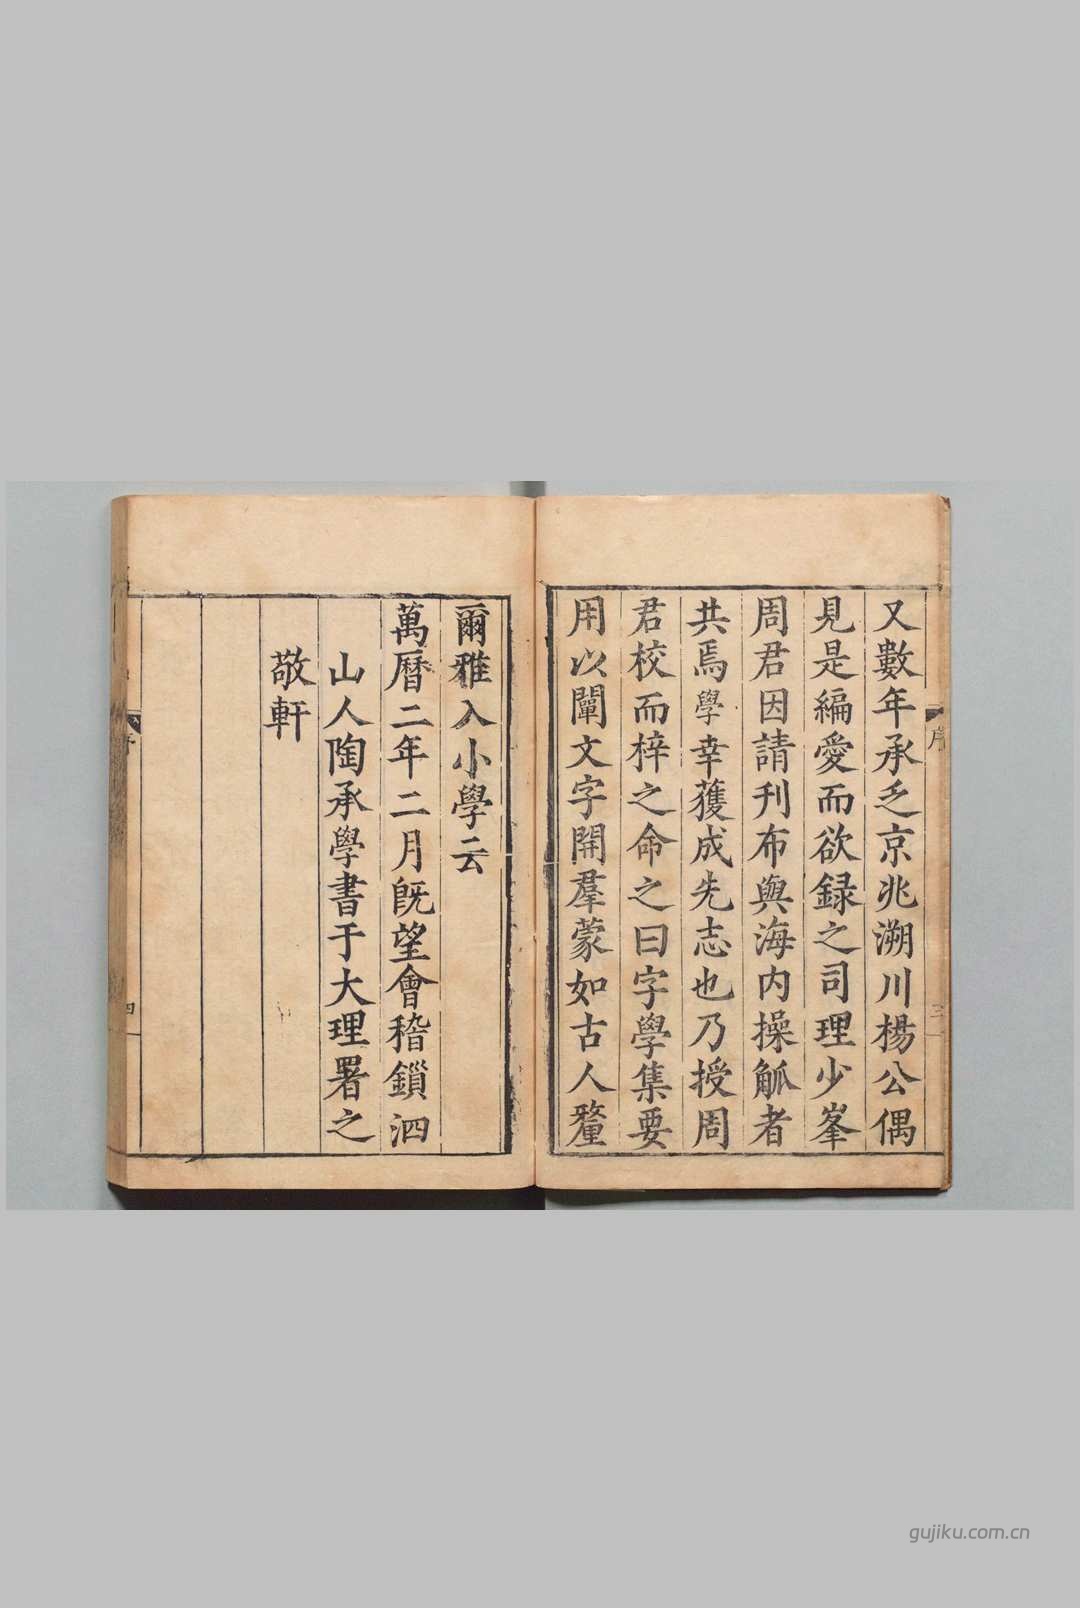 又數年承乏京兆溯川楊公偶
見是編愛而欲録之司理少峯
周君因請刋布與海内操觚者
共焉學幸獲成先志也乃授周
君校而梓之命之曰字學集要
用以闡文字開羣蒙如古人釐
序
三
爾雅入小學云
萬曆二年二月旣望會稽鎖泗
山人陶承學書于大理署之
敬軒
四
gujiku.com.cn